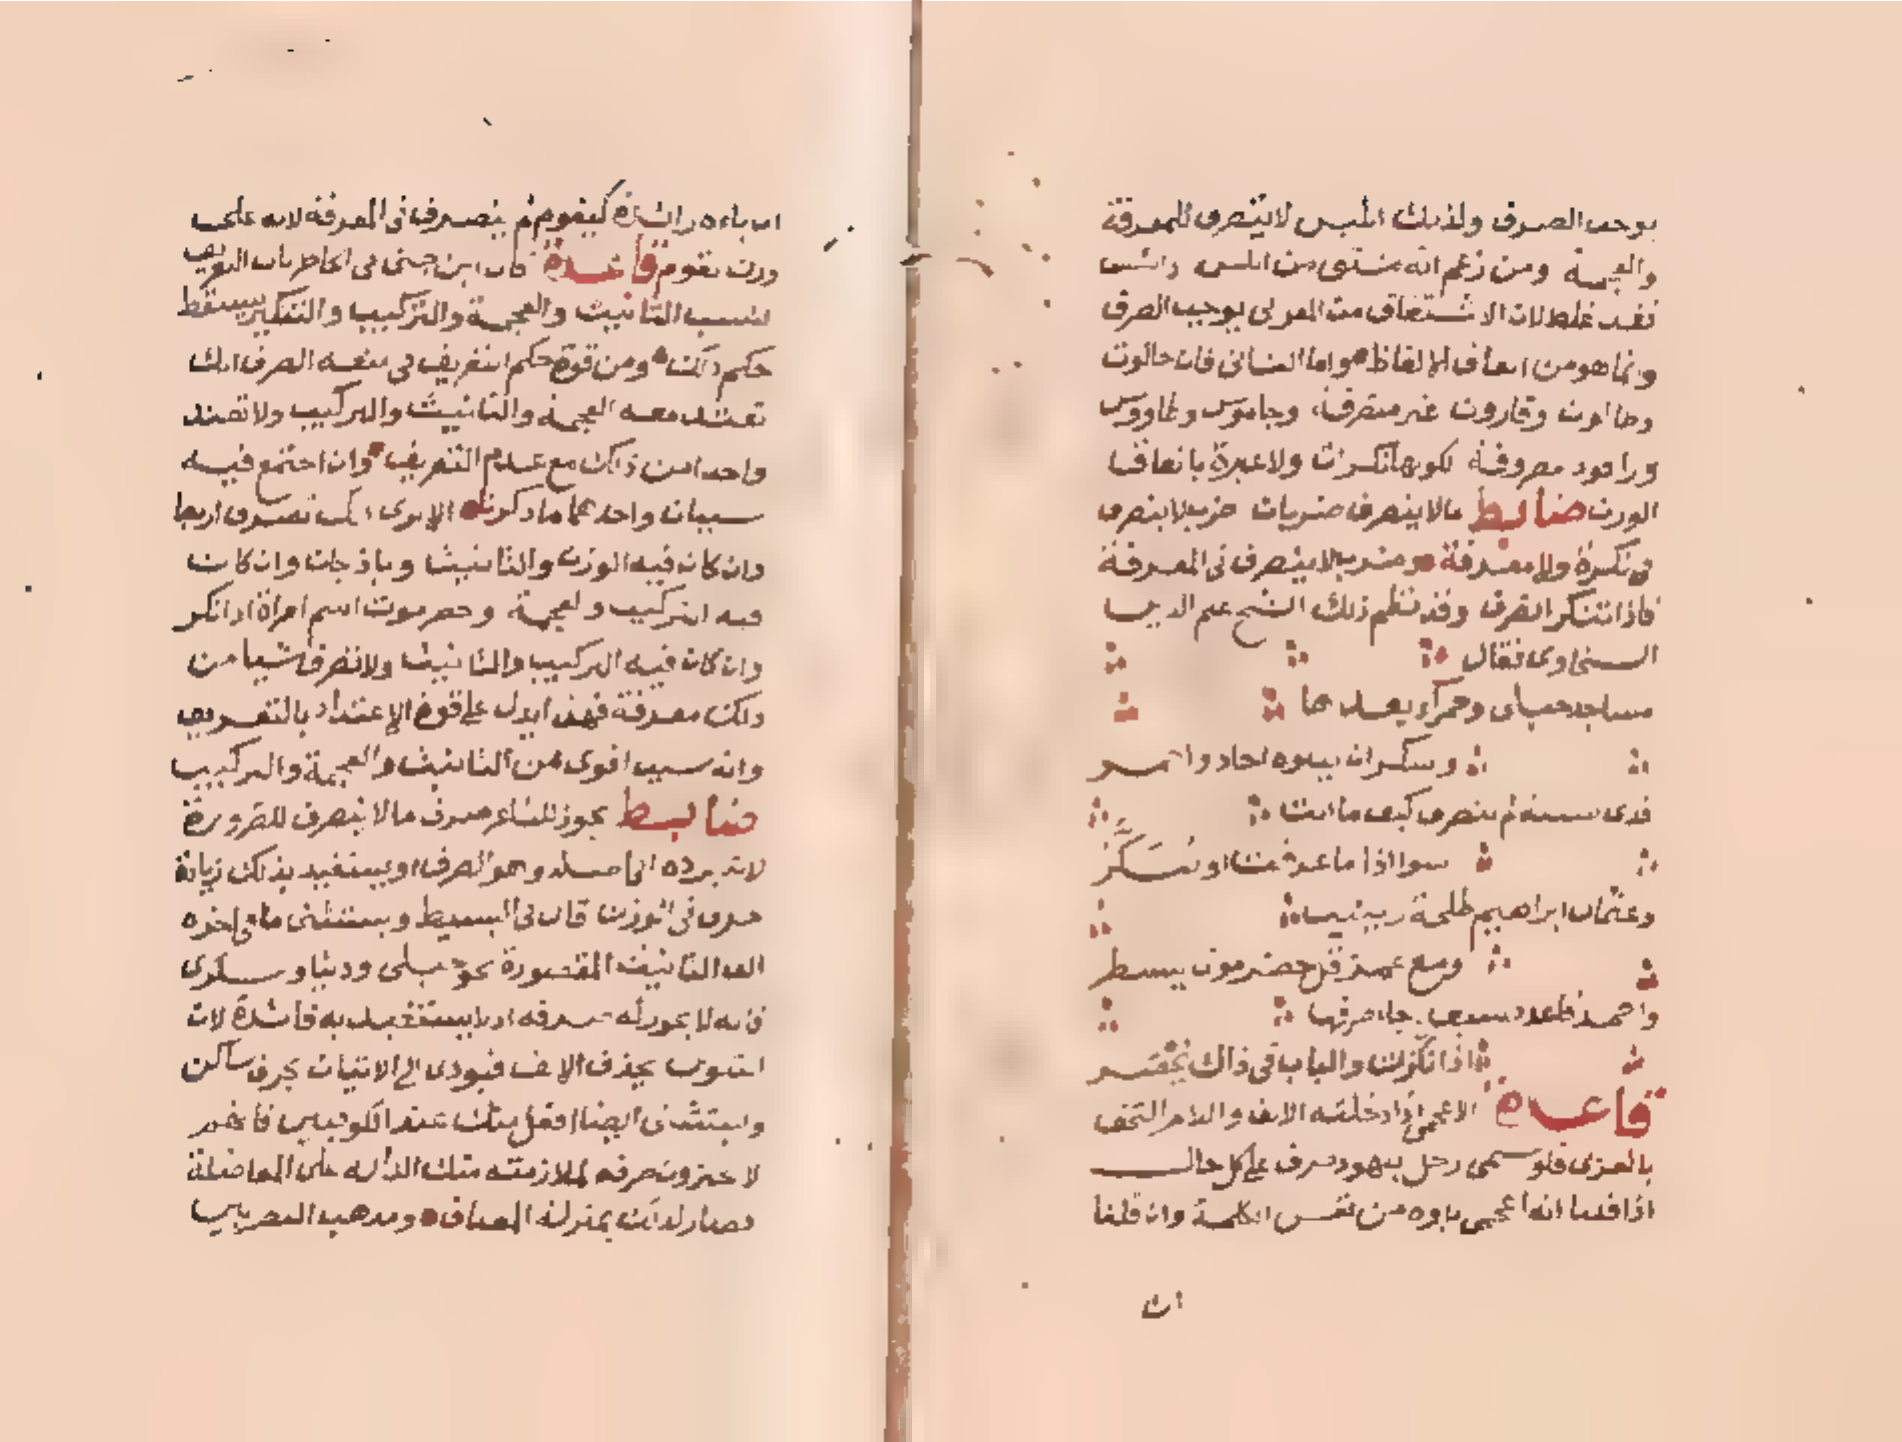 يوجب الصرف ولذلك ابليس لا ينصرف للمعرفة
والعجمة ومن زعم انه مشتق من ابلس
فقد غلط لان الاشتقاق من العربي يوجب الصرف
وانما هو من اتفاق الالفاظ واما الثاني فان جالوت
وطالوت وقارون غير منصرفة وجاموس وطاووس
وراقود مصروفة لكونها نكرات ولا عبرة باتفاق
الوزن ضابط مالا ينصرف ضربان ضرب لا ينصرف
في نكرة ولا معرفة وضرب لا ينصرف في المعرفة
فاذا تنكر انصرف وقد نظم ذلك الشيخ علم الدين
السخاوي فقال
مساجد حبلى وحمراء بعدها
وسكران يتلوه احاد واحمر
فذي ستة لم ينصرف كيف ما اتت
سوا اذا ما عرفت او تنكر
وعثمان ابراهيم طلحة زينب
ومع عمر قل حضرموت يسطر
واحمد فاعدد سبعة جاء صرفها
اذا نكرت والباب في ذاك يحصر
قاعدة الاعجمي اذا دخلته الالف واللام التحق
بالعربي فلو سمي رجل بيهود صرف على كل حال
اذا قلنا انه اعجمي ياوه من نفس الكلمة وان قلنا
ان
ان ياءه زائدة كيقوم لم ينصرف في المعرفة لانه على
وزن يقوم قاعدة قال ابن جني في الخاطريات التعريف
يسقط
حكم ذلك ومن قوة حكم التعريف في منعه الصرف انك
تعتد معه العجمة والتانيث والتركيب ولا تعتد
واحدا من ذلك مع عدم التعريف وان اجتمع فيه
سببان واحدهما ما ذكرنا الا ترى انك تصرف اربعا
وان كان فيه الوزن والتانيث وباذنجان وان كان
فيه التركيب والعجمة وحضرموت اسم امراة اذا نكر
وان كان فيه التركيب والتانيث ولا تصرف شيا من
ذلك معرفة فهذا يدل على قوة الاعتداد بالتعريف
وانه سبب اقوى من التانيث والعجمة والتركيب
ضابط يجوز للشاعر صرف مالا ينصرف للضرورة
لانه يرده الى اصله وهو الصرف او يستفيد بذلك زيادة
حرف في الوزن قال في البسيط ويستثنى ما في اخره
الف التانيث المقصورة نحو حبلى ودنيا وسكرى
فانه لا يجوز له صرفه اذ لا يستفيد به فائدة لان
التنوين يحذف الالف فيودي الى الاتيان بحرف ساكن
واستثنى ايضا افعل منك عند الكوفيين فانهم
لا يجيزون صرفه لملازمته منك الدالة على المفاضلة
فصار لذلك بمنزلة المضاف ومذهب البصريين